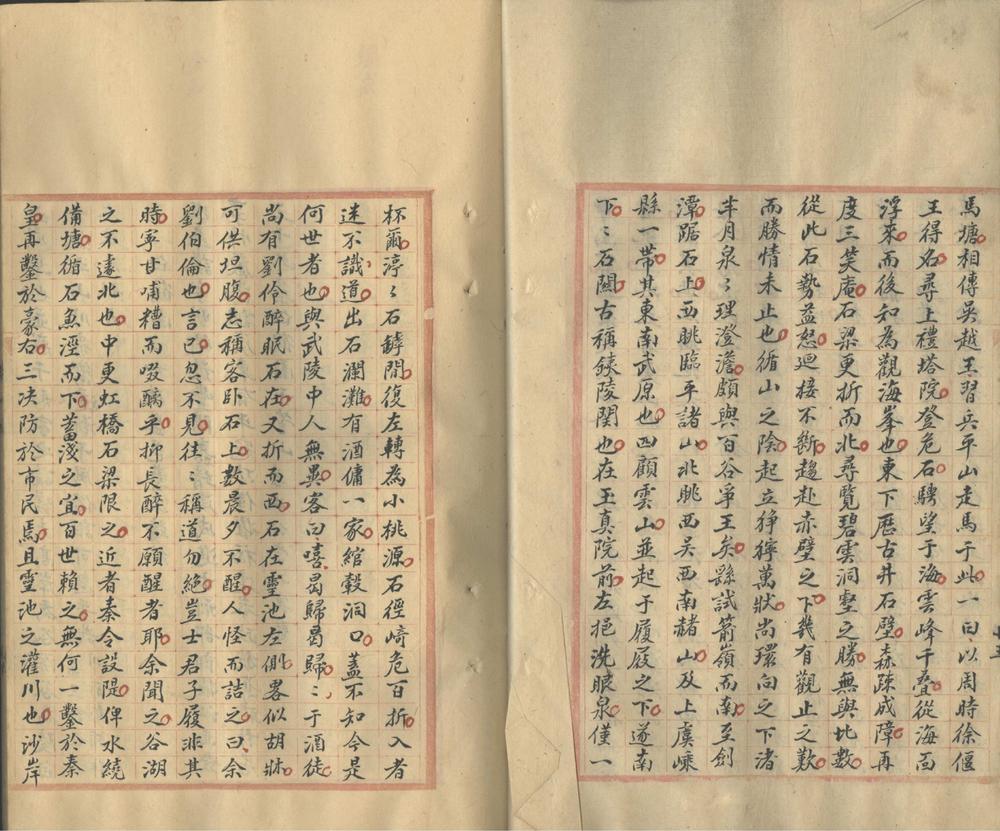 馬塘相傳吳越王習兵平山走馬于此一曰以周時徐偃
王得名尋上禮塔院登危石騁望于海雲峰千疊從海面
浮來而後知為觀海峯也東下歷古井石壁森疎成障再
度三笑庵石梁更折而北尋覽碧雲洞壑之勝無與比數
從此石勢益怒迴接不斷趨赴赤壁之下幾有觀止之歎
而勝情未止也循山之陰起立猙獰萬狀尚環向之下渚
半月泉〻理澄澹頗與百谷爭王矣縣試箭嶺而南至劍
潭踞石上西眺臨平諸山北眺西吳西南赭山及上虞嵊
縣一帶其東南武原也四顧雲山並起于履屐之下遂南
下〻石闕古稱錢陵閏也在玉真院前左挹洗眼泉僅一
杯爾渟〻石罅間復左轉為小桃源石徑崎危百折入者
迷不識道出石瀾灘有酒傭一家綰轂洞口蓋不知今是
何世者也與武陵中人無異客曰嘻曷歸曷歸〻于酒徒
尚有劉伶醉眠石在又折而西石在靈池左側畧似胡牀
可供坦腹志稱客卧石上數晨夕不醒人怪而詰之曰余
劉伯倫也言已忽不見往〻稱道勿絕豈士君子履非其
時寧甘哺糟而啜醨乎抑長醉不願醒者耶余聞之谷湖
之不遠北也中更虹橋石梁限之近者秦令設隄俾水繞
備塘循石魚涇而下蓄淺之宜百世賴之無何一鑿於秦
皇再鑿於豪右三决防於市民馬且靈池之灌川也沙岸